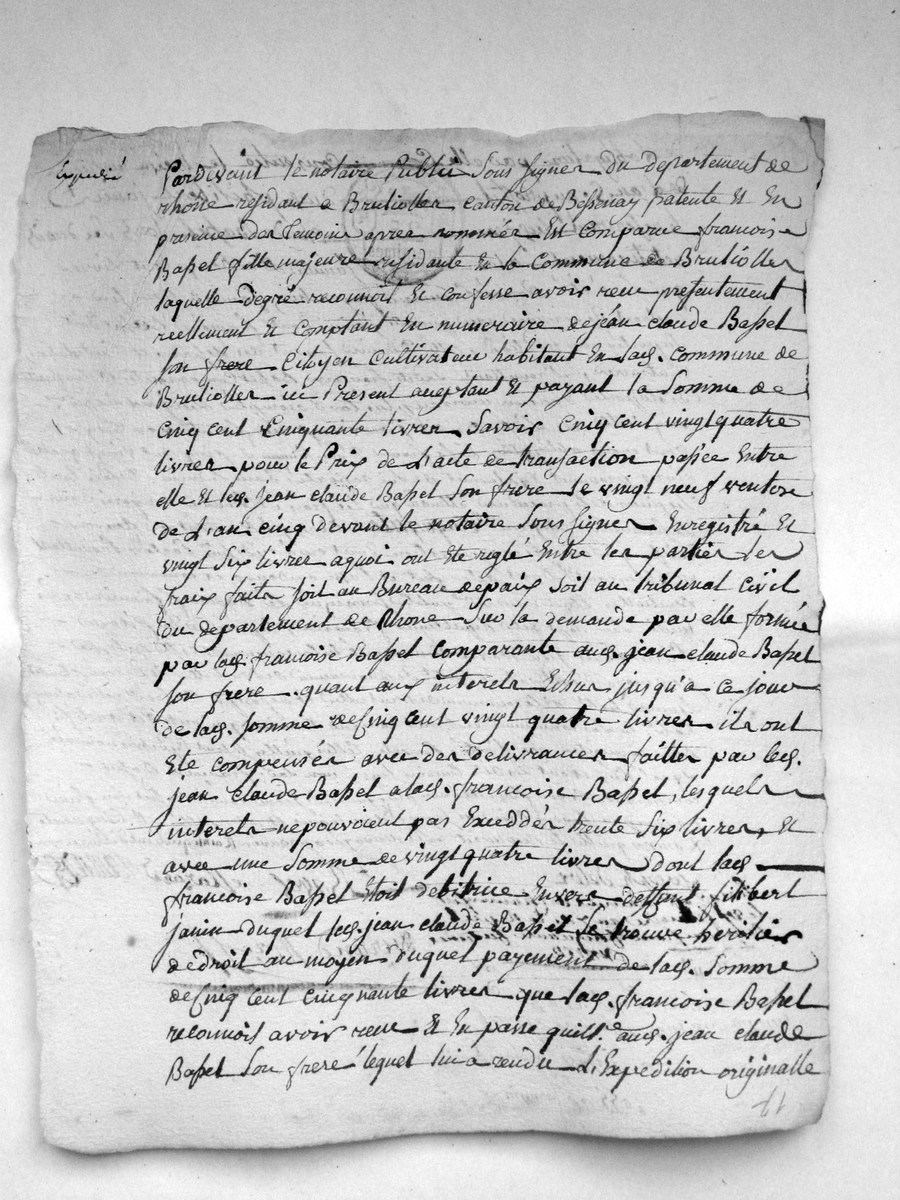 Expedié
Pardevant le notaire Public Sous Signer du departement de
rhone residant a Brulioller canton de Bessenay patente Et En
presence der Temoins apres nommés Est Comparue francoise
Bassel fille majeure residante En la Commune de Brulioller
laquelle degré reconnoit Et confesse avoir recu presentement
reellement Et Comptant En numeraire de jean claude Bassel
son frere Citoyen Cultivateur habitant En lad. commune de
Brulioller ici Present acceptant Et payant la Somme de
Cinq cent Cinquante livres, Savoir Cinq cent vingt quatre
livres pour le Prix de L'acte de transaction passée Entre
elle Et led. jean claude Bassel son frere le vingt neuf ventose
de L'an cinq devant le notaire Sous Signer Enregistré Et
vingt Six livres a quoi ont Eté reglé Entre les parties les
fraix faits soit au Bureau de paix soit au tribunal Civil
du departement de Rhone Sur la demande par elle formée
par lad. francoise Bassel Comparante aud. jean claude Bassel
son frere. quant aux interets Echus jusqu'a ce jour
de lad. somme de Cinq Cent vingt quatre livres ils ont
Eté compensés avec des delivrances faittes par led.
jean Claude Bassel a lad. francoise Bassel, lesquels
interets ne pouvoient pas Exceddés trente Six livres, Et
avec une Somme de vingt quatre livres dont lad.
francoise Bassel Etoit debitrice Envers deffunt filibert
janin duquel led. jean claude Bassel Se trouve heritier
de droit au moyen duquel payement de lad. Somme
de Cinq Cent cinquante livres que lad. francoise Bassel
reconnoit avoir recue Et En passe quitt.e aud. jean claude
Bassel Son frere lequel lui a rendu L'Expedition originalle